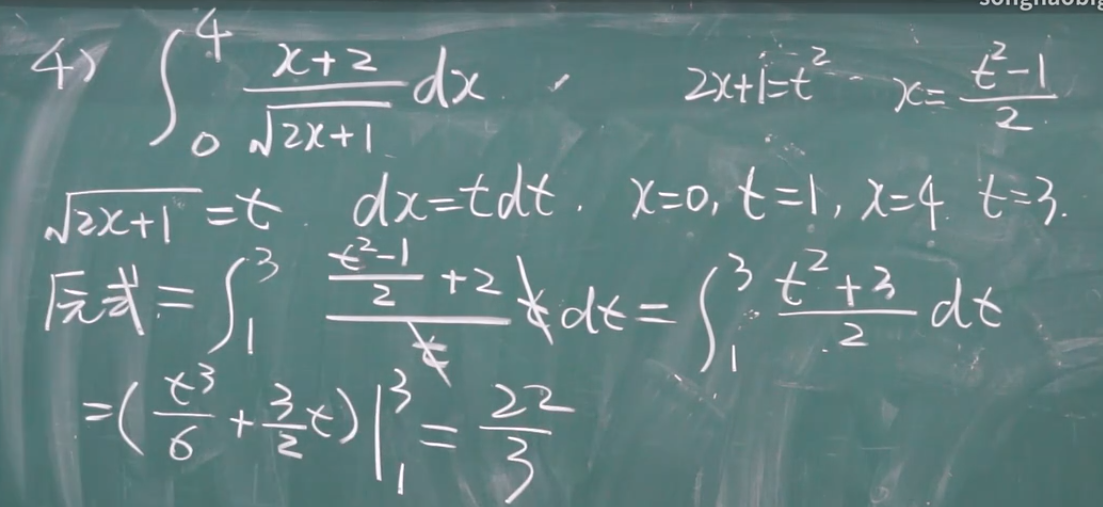 songhaobig
4) ∫₀⁴ (x+2)/√(2x+1) dx. 2x+1=t² x=(t²-1)/2.
√(2x+1)=t. dx=tdt. x=0, t=1, x=4. t=3.
原式=∫₁³ ((t²-1)/2+2)/t tdt=∫₁³ (t²+3)/2 dt
=(t³/6+3/2t)|₁³=22/3